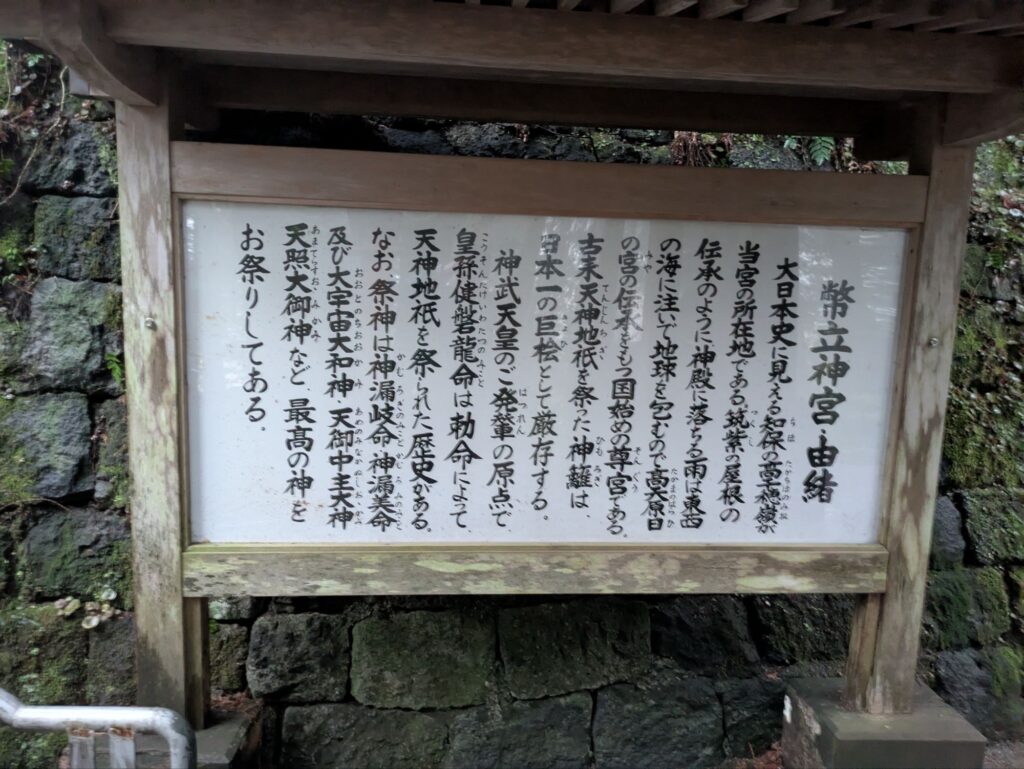 幣立神宮由緒
大日本史に見える知保の高千穂嶺が
当宮の所在地である。筑紫の屋根の
伝承のように神殿に落ちる雨は東西
の海に注いで地球を包むので高天原日
の宮の伝承をもつ国始めの尊宮である。
古来天神地祇を祭った神籬は、
日本一の巨桧として厳存する。
神武天皇のご発輦の原点で
皇孫健磐龍命は勅命によって、
天神地祇を祭られた歴史がある。
なお祭神は神漏岐命 神漏美命
及び大宇宙大和神 天御中主大神
天照大御神など、最高の神を
お祭りしてある。